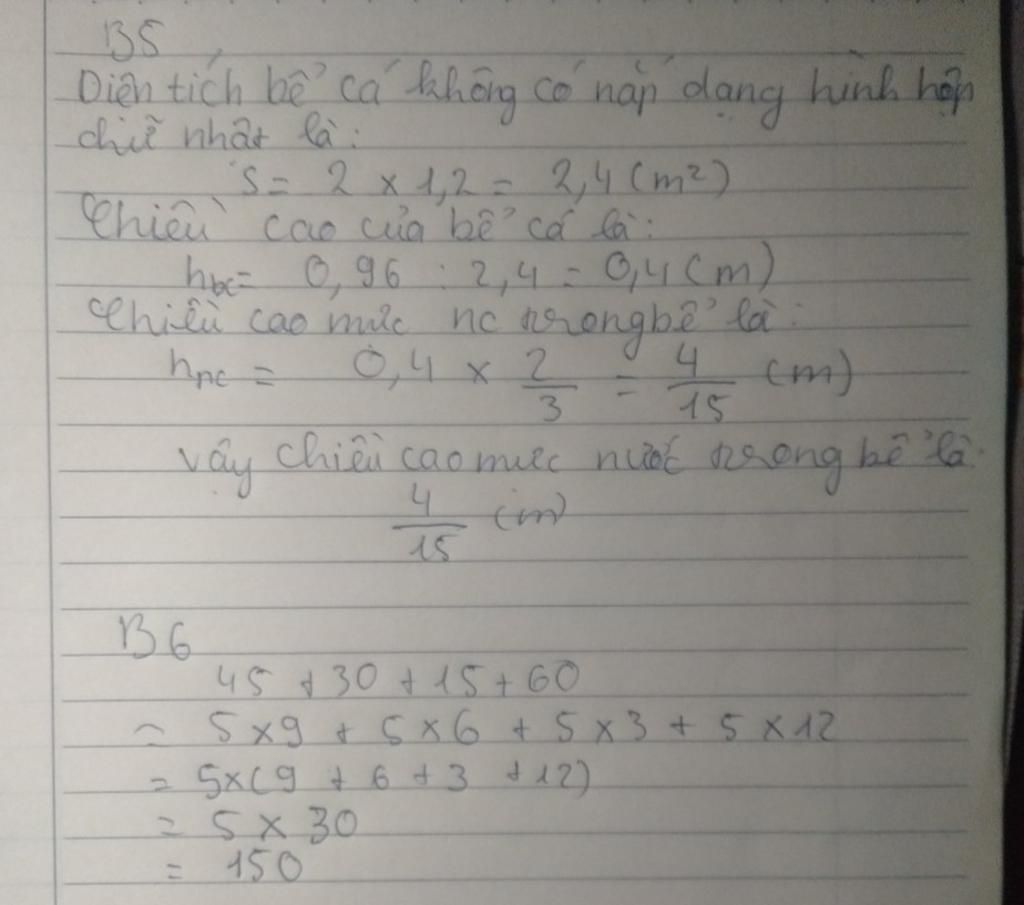 B5
Diện tích bể cá không có nắp dạng hình hộp
chữ nhật là:
S = 2 × 1,2 = 2,4 (m²)
Chiều cao của bể cá là:
h_bc = 0,96 : 2,4 = 0,4 (m)
Chiều cao mức nc trong bể là:
h_nc = 0,4 × 2/3 = 4/15 (m)
vậy chiều cao mực nước trong bể là:
4/15 (m)
B6
45 + 30 + 15 + 60
= 5 × 9 + 5 × 6 + 5 × 3 + 5 × 12
= 5 × (9 + 6 + 3 + 12)
= 5 × 30
= 150